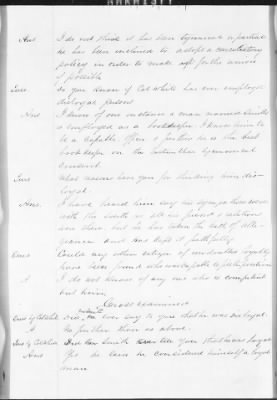 Ans I do not think it has been by removing a partisan
he has been inclined to adopt a conciliatory
policy in order to make up for the
if possible
Ques Do you know if Col White has ever employed
disloyal persons
Ans I know of one instance a man named Smith
is employed as a bookkeeper I know him to
be a Officer I he is the best
book keeper on the
Ques What reason have you for thinking him dis-
loyal.
Ans. I have heard him say his sympathies were
with the South as all his friends & relations
were there, but he has taken the oath of alle-
giance and has kept it faithfully.
Ques Could any other citizen of undoubted loyalty
have been found who was capable to fill the position
A I do not know of any one who is competent
but him,
Cross examined
Ques by Col White Did he ever say to you that he was disloyal.
A No further than as above.
Ques by Col White Did Smith ever tell you that he was loyal
Ans Yes he he considered himself a loyal
man